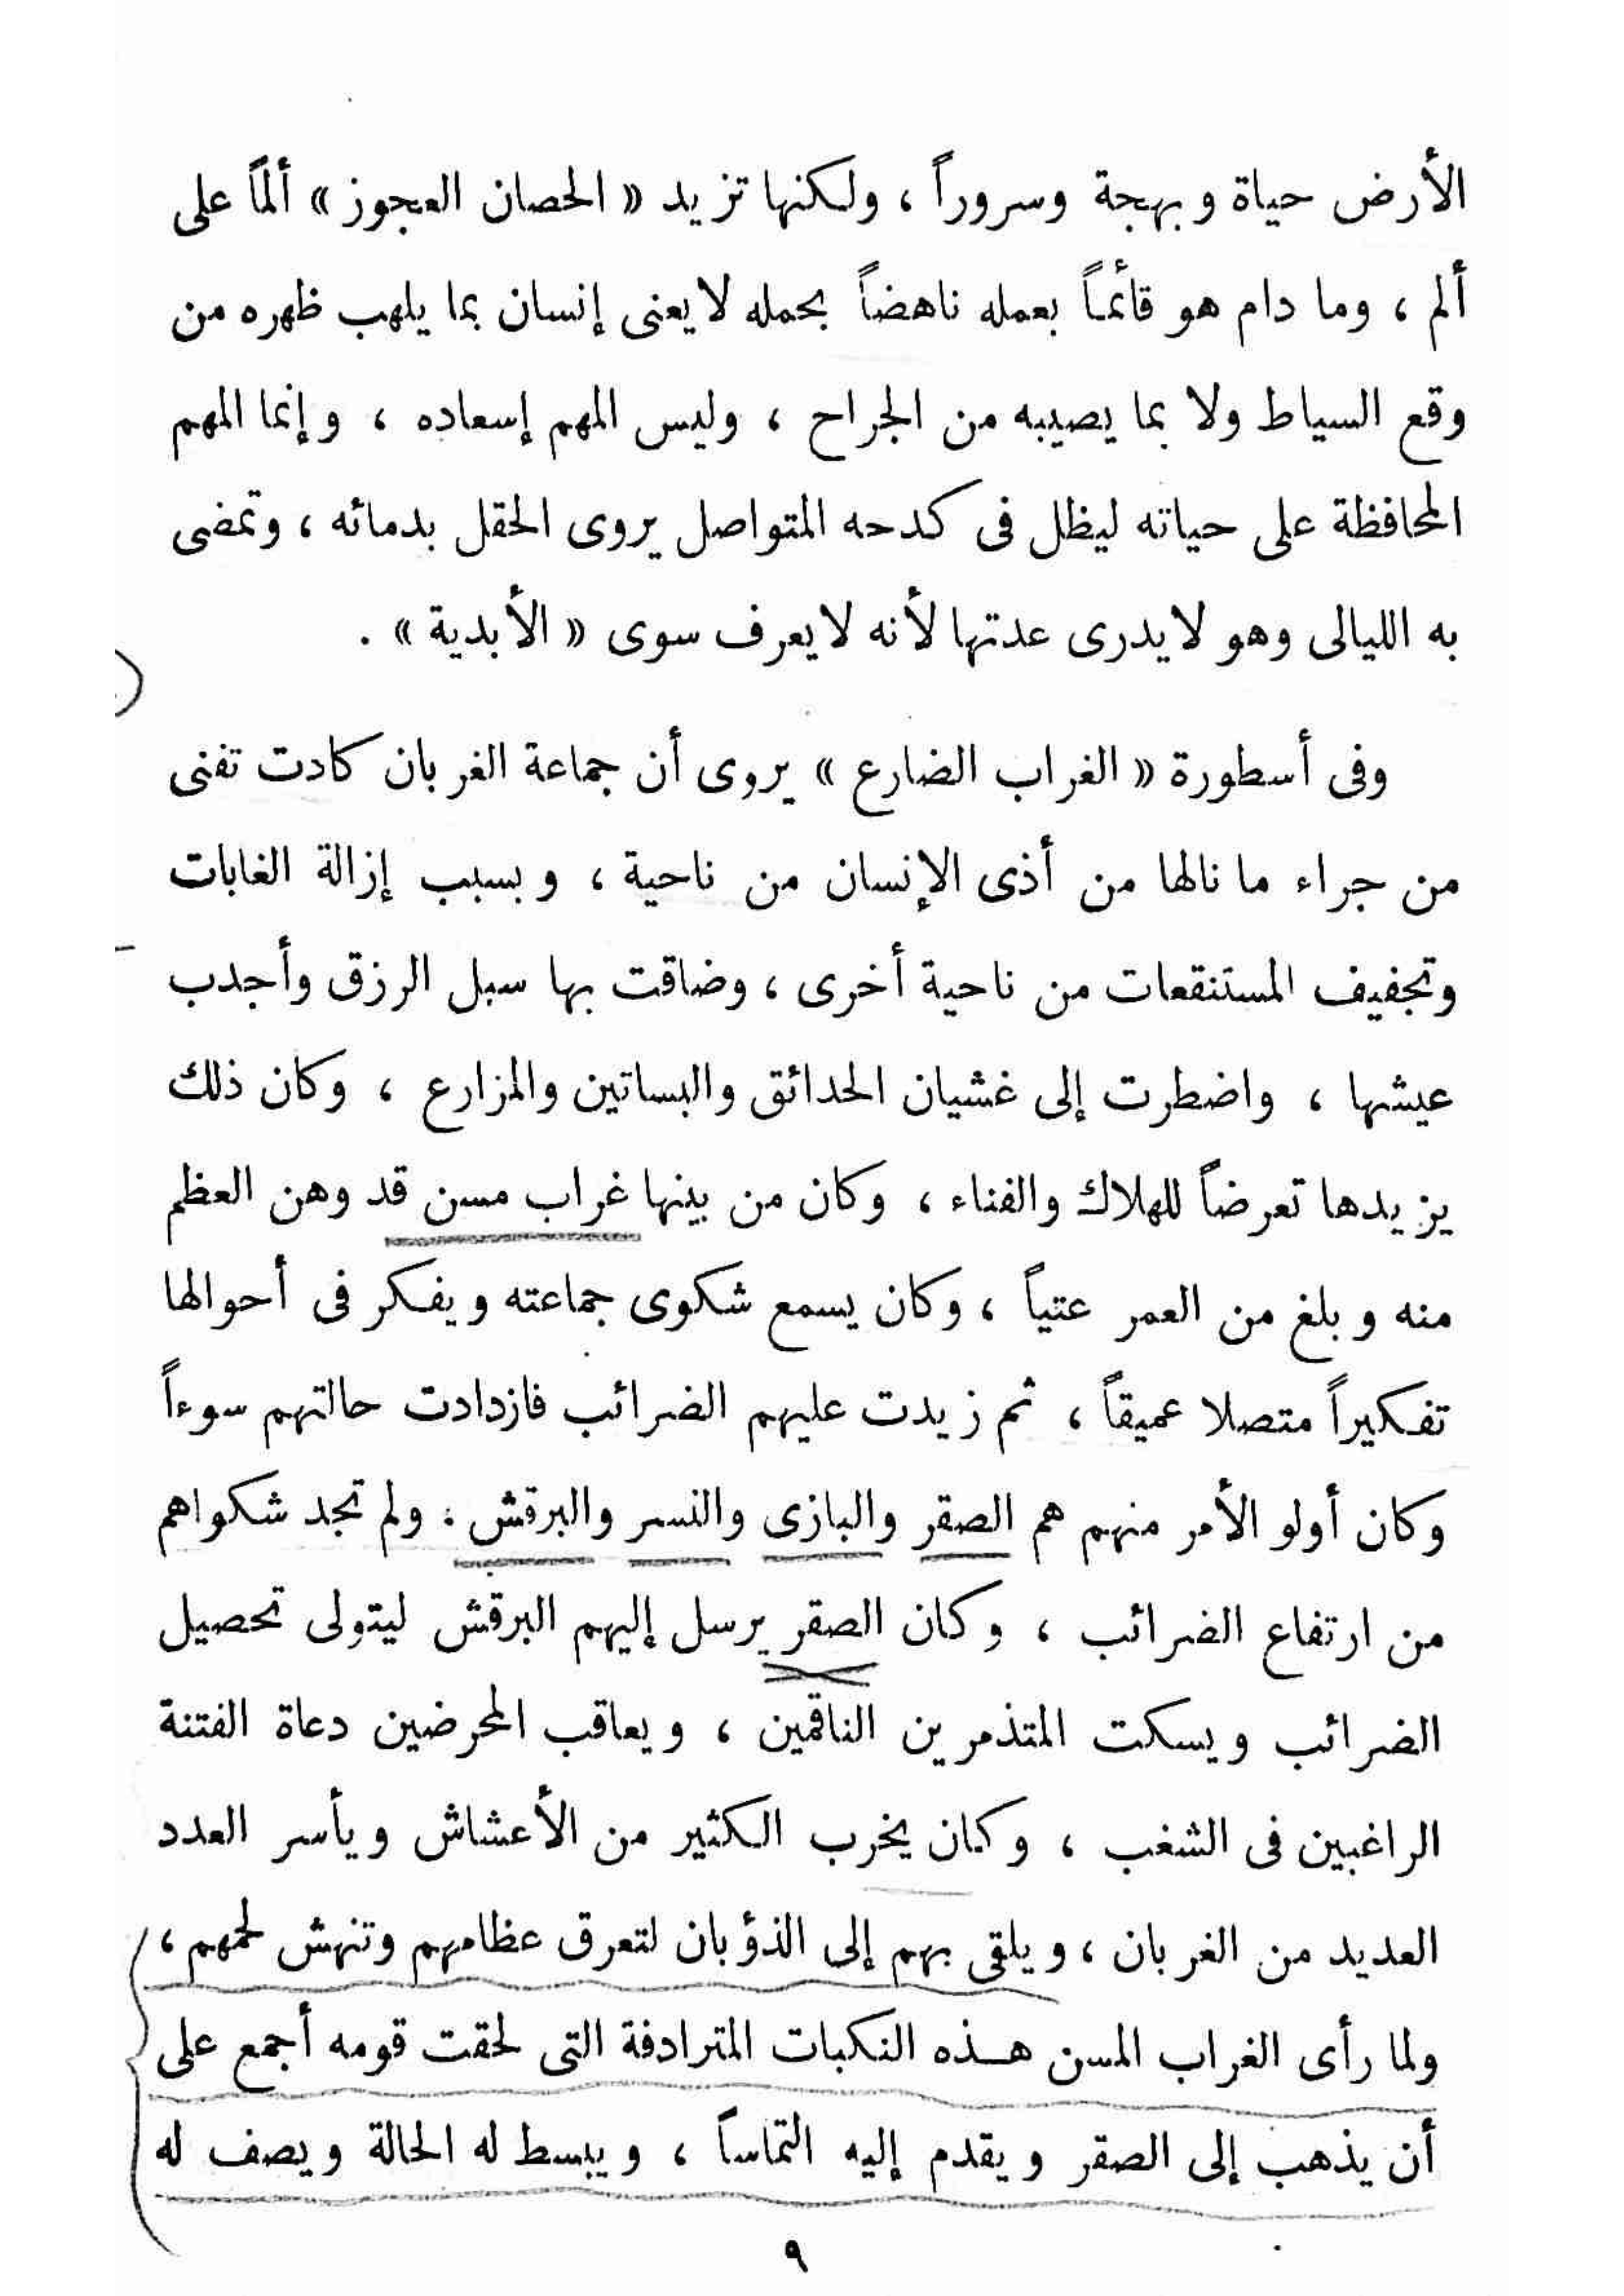 الأرض حياة وبهجة وسروراً ، ولكنها تزيد « الحصان العجوز » ألماً على
ألم ، وما دام هو قائماً بعمله ناهضاً بحمله لا يعنى إنسان بما يلهب ظهره من
وقع السياط ولا بما يصيبه من الجراح ، وليس المهم إسعاده ، وإنما المهم
المحافظة على حياته ليظل فى كدحه المتواصل يروى الحقل بدمائه ، وتمضى
به الليالى وهو لا يدرى عدتها لأنه لا يعرف سوى « الأبدية » .
وفى أسطورة « الغراب الضارع » يروى أن جماعة الغربان كادت تفنى
من جراء ما نالها من أذى الإنسان من ناحية ، وبسبب إزالة الغابات
وتجفيف المستنقعات من ناحية أخرى ، وضاقت بها سبل الرزق وأجدب
عيشها ، واضطرت إلى غشيان الحدائق والبساتين والمزارع ، وكان ذلك
يزيدها تعرضاً للهلاك والفناء ، وكان من بينها غراب مسن قد وهن العظم
منه وبلغ من العمر عتياً ، وكان يسمع شكوى جماعته ويفكر فى أحوالها
تفكيراً متصلا عميقاً ، ثم زيدت عليهم الضرائب فازدادت حالتهم سوءاً
وكان أولو الأمر منهم هم الصقر والبازى والنسر والبرقش ، ولم تجد شكواهم
من ارتفاع الضرائب ، وكان الصقر يرسل إليهم البرقش ليتولى تحصيل
الضرائب ويسكت المتذمرين الناقمين ، ويعاقب المحرضين دعاة الفتنة
الراغبين فى الشغب ، وكان يخرب الكثير من الأعشاش ويأسر العدد
العديد من الغربان ، ويلقى بهم إلى الذؤبان لتعرق عظامهم وتنهش لحمهم ،
ولما رأى الغراب المسن هذه النكبات المترادفة التى لحقت قومه أجمع على
أن يذهب إلى الصقر ويقدم إليه التماساً ، ويبسط له الحالة ويصف له
٩